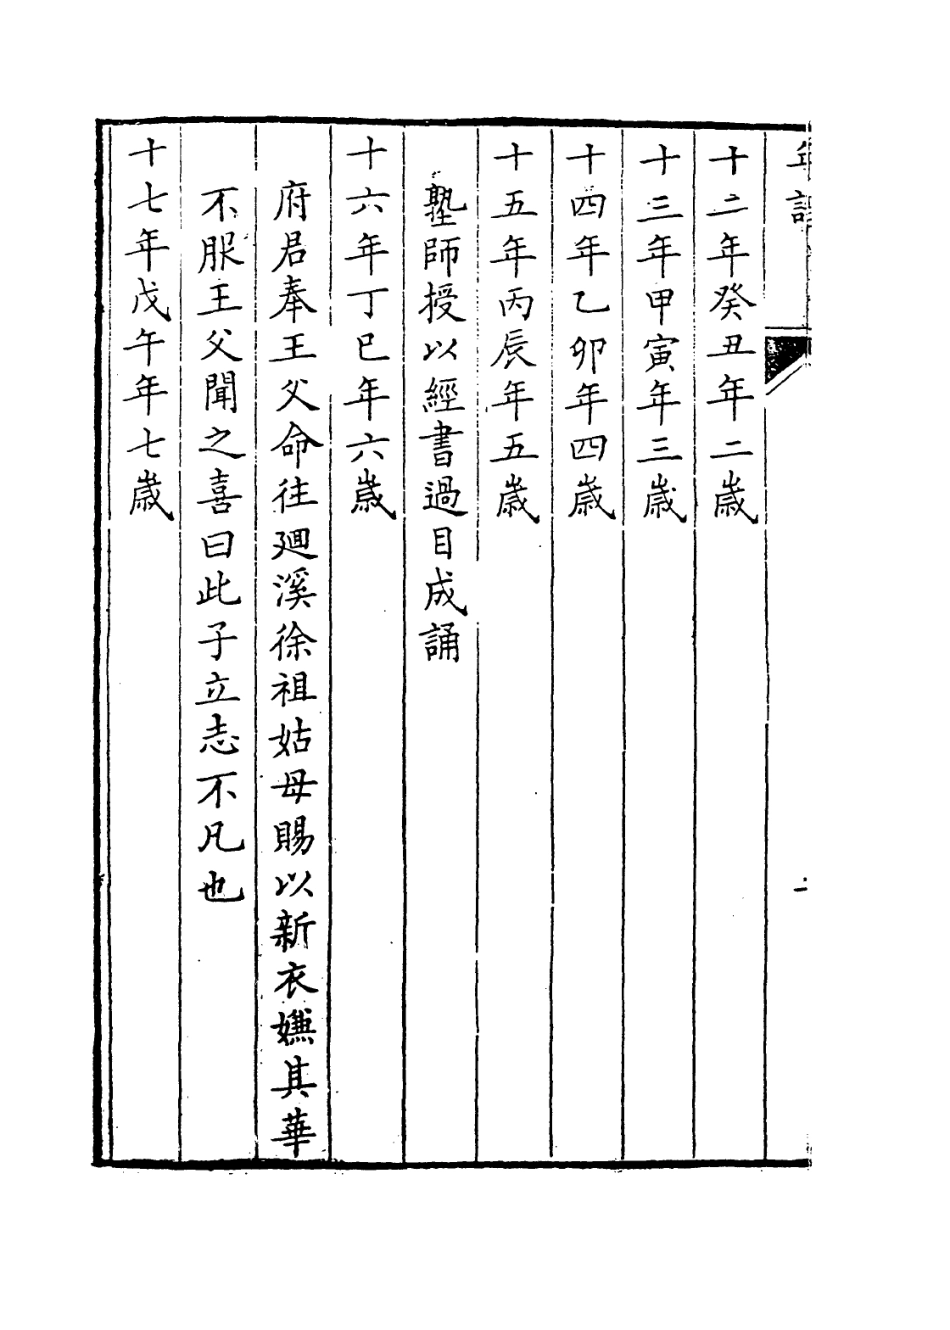 年譜
十二年癸丑年二歲
十三年甲寅年三歲
十四年乙卯年四歲
十五年丙辰年五歲
塾師授以經書過目成誦
十六年丁巳年六歲
府君奉王父命往廻溪徐祖姑母賜以新衣嫌其華
不服王父聞之喜曰此子立志不凡也
十七年戊午年七歲